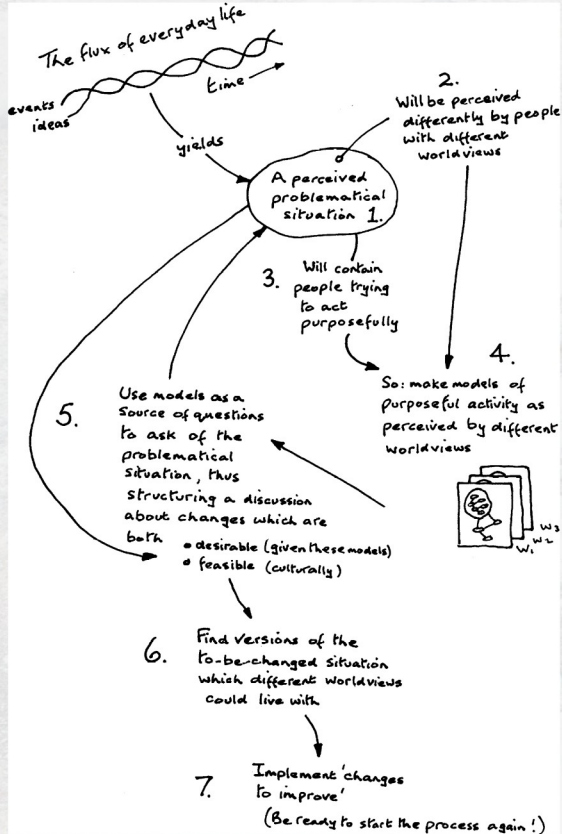 The flux of everyday life
time
events
ideas
yields
2.
Will be perceived
differently by people
with different
worldviews
A perceived
problematical
situation 1.
3.
Will contain
people trying
to act
purposefully
4.
So: make models of
purposeful activity as
perceived by different
worldviews
W3
W2
W1
5.
Use models as a
Source of questions
to ask of the
problematical
situation, thus
structuring a discussion
about changes which are
both
• desirable (given these models)
• feasible (culturally)
6.
Find versions of the
to-be-changed situation
which different worldviews
could live with
7.
Implement 'changes
to improve'
(Be ready to start the process again!)